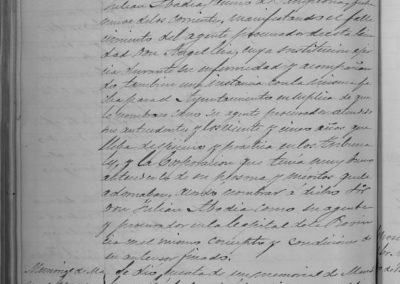 Julian Abadia, vecino de Pamplona, fecha
nueve de los corrientes, manifestando el falle
cimiento del agente procurador de esta ciu
dad Don Angel cuya sustitucion ejer
cia durante su enfermedad y acompañan
do tambien una instancia con la misma fe
cha para el Ayuntamiento en suplica de que
le nombrase su agente procurador, atendido
sus antecedentes y los veinte y cinco años que
lleva de servicio y practica en los Tribuna
les, y la Corporacion que tenia muy buenos
antecedentes de su persona y meritos que le
adornaban, acordó nombrar á dicho Sor
Don Julian Abadia como su agente
y procurador en la Capital de la Provin
cia en el mismo concepto y condiciones de
su antecesor finado.
Memorial de Ma Se dio cuenta de un memorial de Manu